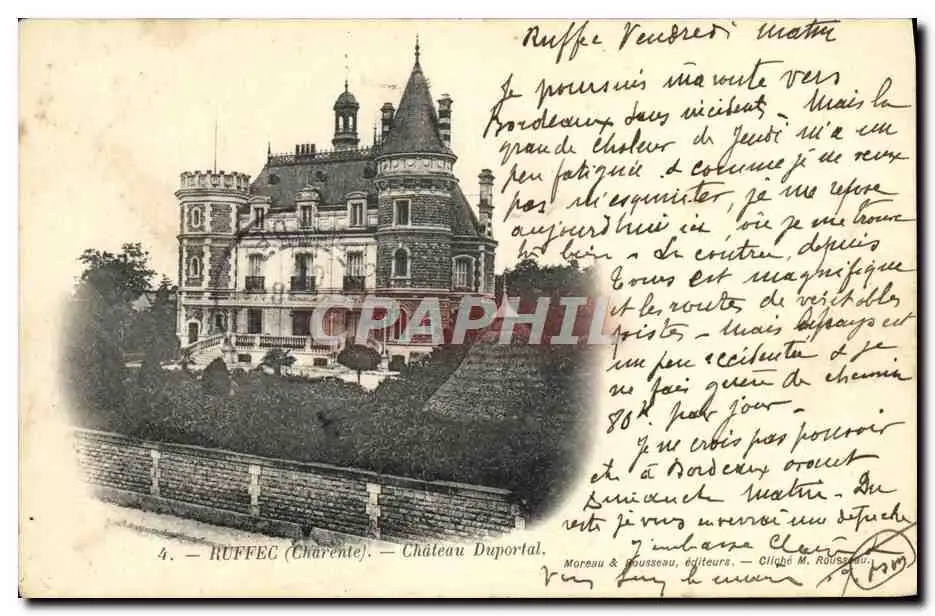 Ruffec Vendredi matin
Je poursuis ma route vers
Bordeaux sans incident - Mais la
grande chaleur de Jeudi m'a un
peu fatigué & comme je ne veux
pas m'esquinter, je me repose
aujourd'hui ici où je me trouve
bien - La contrée, depuis
Tours est magnifique
et les routes de véritables
pistes - Mais le pays est
un peu accidenté & je
ne fais guère de chemin
80k par jour -
Je ne crois pas pouvoir
être à Bordeaux avant
Dimanche Matin - Du
reste je vous enverrai une dépêche
J'embrasse
CAPHIL
4. — RUFFEC (Charente). — Château Duportal.
Moreau & Rousseau, éditeurs. — Cliché M. Rousseau.